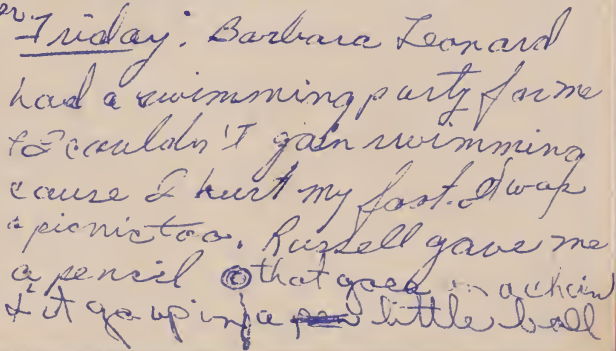 Friday: Barbara Leonard
had a swimming party for me
& I couldn't go in swimming
cause I hurt my foot. It was
a picnic too. Russell gave me
a pencil that goes in a chain
& it go up in a little ball